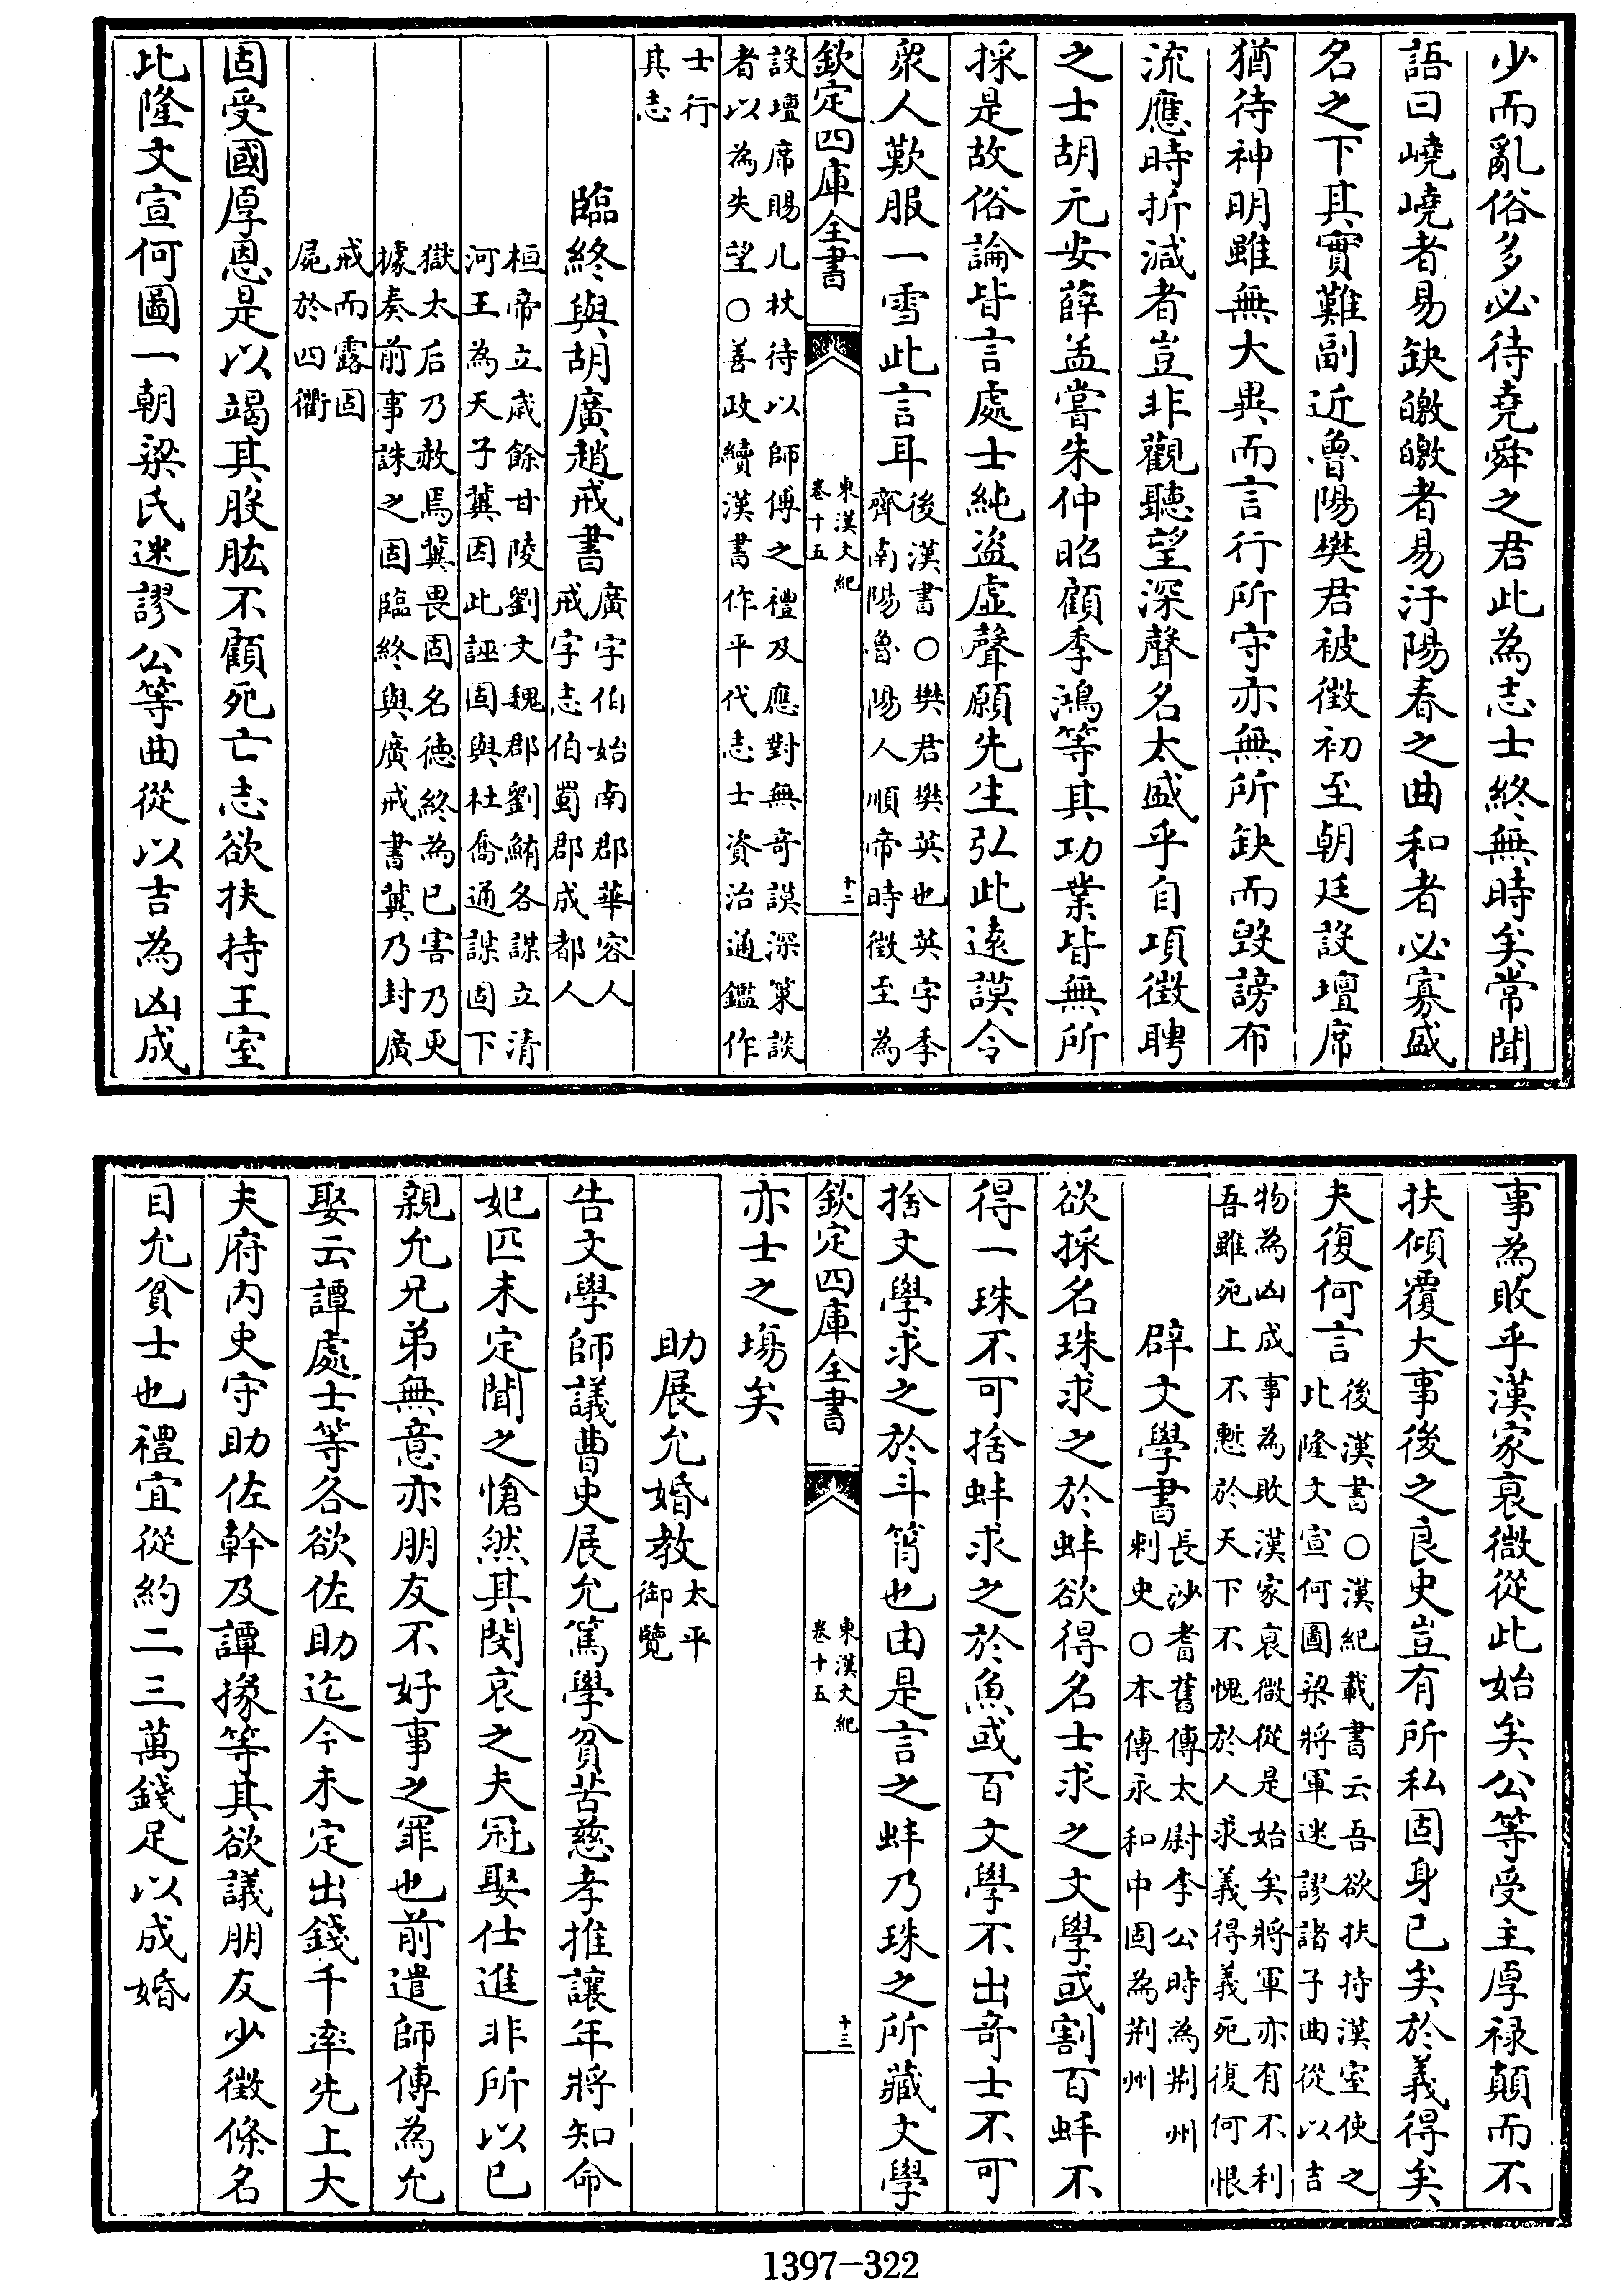 少而亂俗多必待堯舜之君此為志士終無時矣常聞
語曰嶢嶢者易缺皦皦者易汙陽春之曲和者必寡盛
名之下其實難副近魯陽樊君被徵初至朝廷設壇席
猶待神明雖無大異而言行所守亦無所缺而毀謗布
流應時折減者豈非觀聽望深聲名太盛乎自項徵聘
之士胡元安薛孟嘗朱仲昭顧季鴻等其功業皆無所
採是故俗論皆言處士純盜虛聲願先生弘此遠謨令
衆人歎服一雪此言耳後漢書○樊君樊英也英字季
齊南陽魯陽人順帝時徵至為
欽定四庫全書
東漢文紀
卷十五
十二
設壇席賜几杖待以師傅之禮及應對無奇謨深策談
者以為失望○善政續漢書作平代志士資治通鑑作
士行
其志
臨終與胡廣趙戒書廣字伯始南郡華容人
戒字志伯蜀郡成都人
桓帝立歲餘甘陵劉文魏郡劉鮪各謀立清
河王為天子冀因此誣固與杜喬通謀固下
獄太后乃赦焉冀畏固名德終為已害乃更
據奏前事誅之固臨終與廣戒書冀乃封廣
戒而露固
屍於四衢
固受國厚恩是以竭其股肱不顧死亡志欲扶持王室
比隆文宣何圖一朝梁氏迷謬公等曲從以吉為凶成
事為敗乎漢家衰微從此始矣公等受主厚禄顛而不
扶傾覆大事後之良史豈有所私固身已矣於義得矣
夫復何言後漢書○漢紀載書云吾欲扶持漢室使之
比隆文宣何圖梁將軍迷謬諸子曲從以吉
物為凶成事為敗漢家衰微從是始矣將軍亦有不利
吾雖死上不慙於天下不愧於人求義得義死復何恨
辟文學書長沙耆舊傳太尉李公時為荆州
刺史○本傳永和中固為荆州
欲採名珠求之於蚌欲得名士求之文學或割百蚌不
得一珠不可捨蚌求之於魚或百文學不出奇士不可
捨文學求之於斗筲也由是言之蚌乃珠之所藏文學
欽定四庫全書
東漢文紀
卷十五
十三
亦士之塲矣
助展允婚教太平
御覽
告文學師議曹史展允篤學貧苦慈孝推讓年將知命
妃匹未定聞之愴然其閔哀之夫冠娶仕進非所以已
親允兄弟無意亦朋友不好事之罪也前遣師傅為允
娶云譚處士等各欲佐助迄今未定出錢千率先上大
夫府内史守助佐幹及譚掾等其欲議朋友少徵條名
目允貧士也禮宜從約二三萬錢足以成婚
1397-322